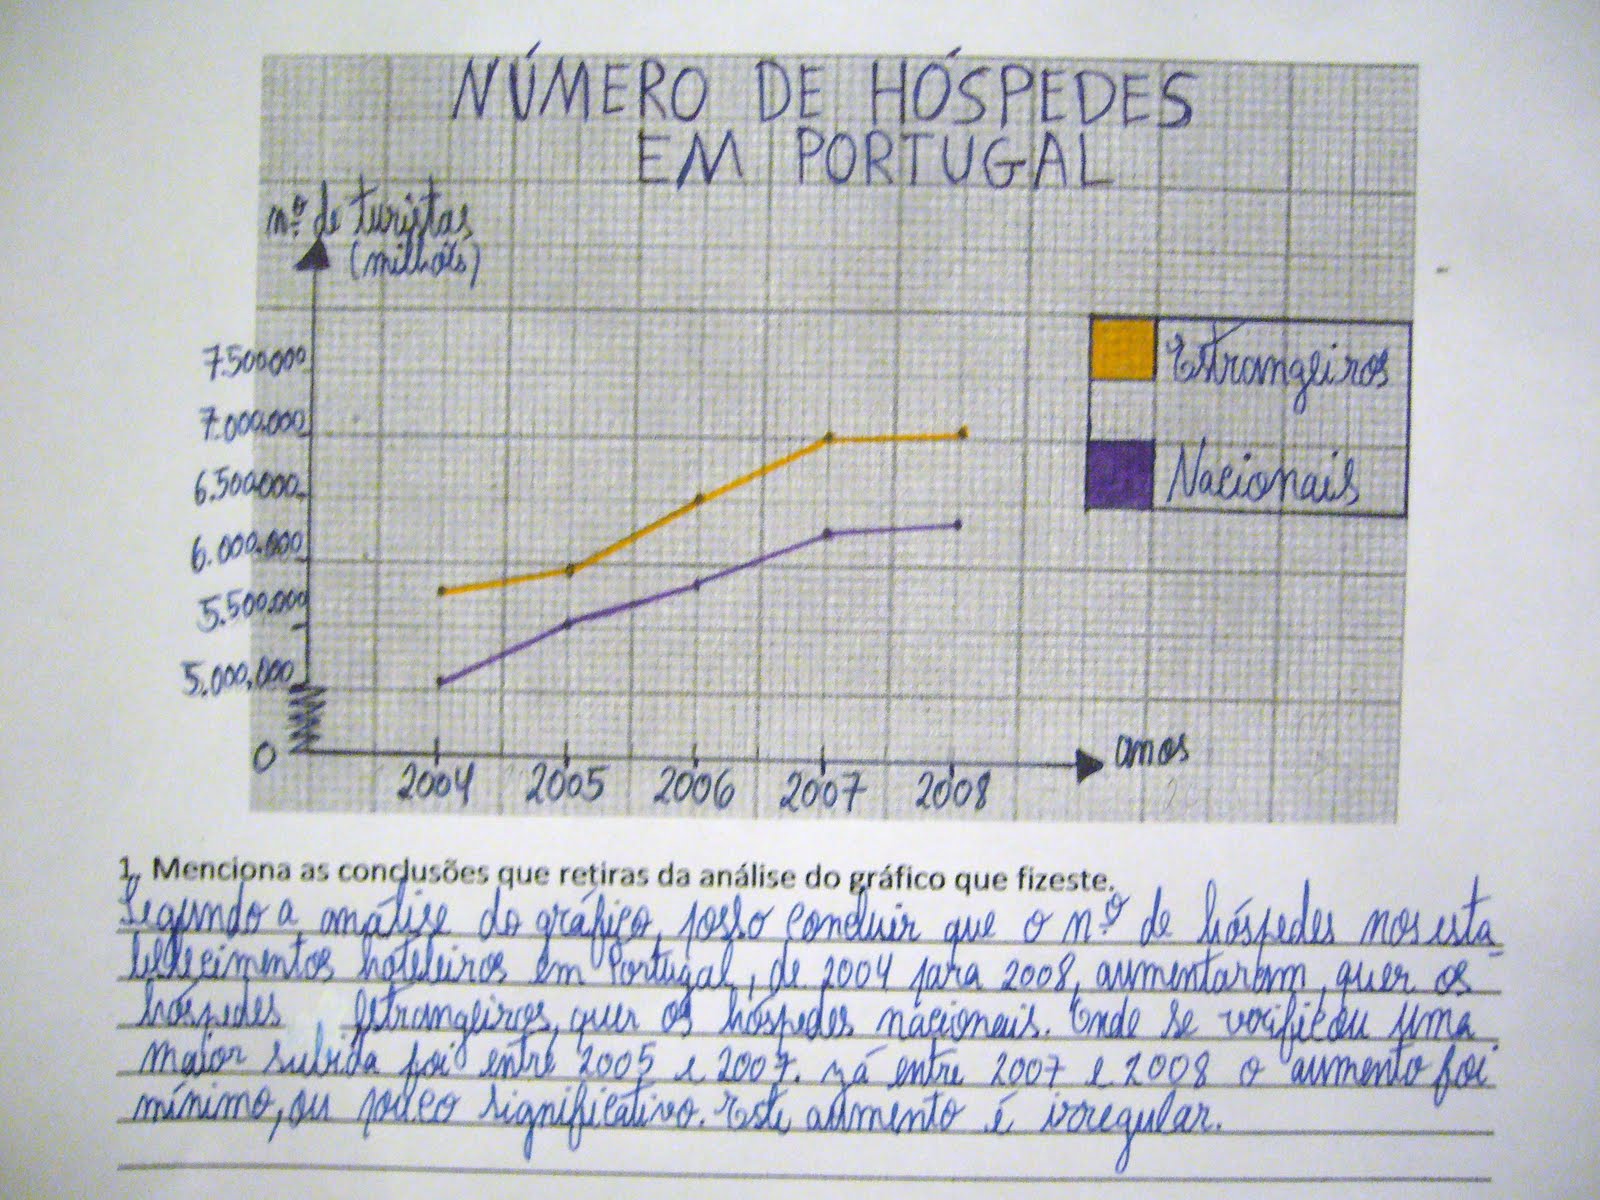 NÚMERO DE HÓSPEDES
EM PORTUGAL
nº de turistas
(milhões)
7.500000
7.000.000
6.500000
6.000.000
5.500.000
5.000,000
0
2004 2005 2006 2007 2008
anos
Estrangeiros
Nacionais
1. Menciona as conclusões que retiras da análise do gráfico que fizeste.
Segundo a análise do gráfico, posso concluir que o nº de hóspedes nos esta_
belecimentos hoteleiros em Portugal, de 2004 para 2008, aumentaram, quer os
hóspedes Estrangeiros, quer os hóspedes nacionais. Onde se verificou uma
maior subida foi entre 2005 e 2007. Já entre 2007 e 2008 o aumento foi
mínimo, ou pouco significativo. Este aumento é irregular.